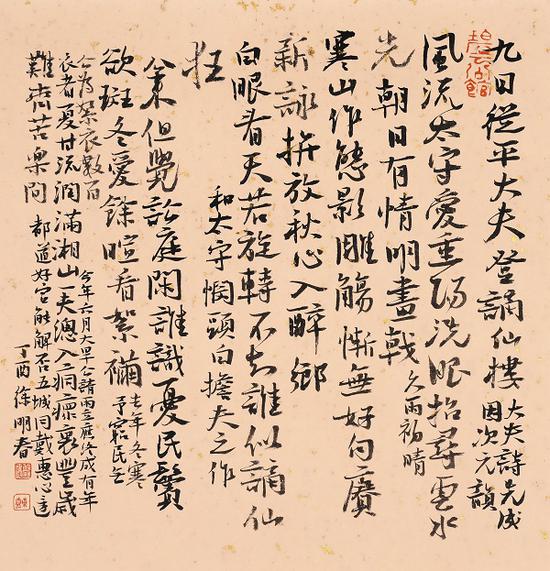 九日從平大夫登謫仙樓 大夫詩先成
因次元韻
風流太守愛重陽洗眼招尋雲水
光朝日有情明畫戟 久雨初晴
寒山作態影雕觴慚無好句賡
新詠拚放秋心入醉鄉
白眼看天若旋轉不知誰似謫仙
狂
和太守悯頭白擔夫之作
案但覺訟庭閑誰識憂民鬢
欲斑冬愛餘暄看絮襺 去年冬寒
予窮民無
公為絮衣數百 今年六月大旱公請雨立應後成有年
衣者夏甘流潤滿湘山一夫總入痌瘝裏豐歲
難齊苦樂間 都道好官能解否五城同戴惠心
丁酉徐明春